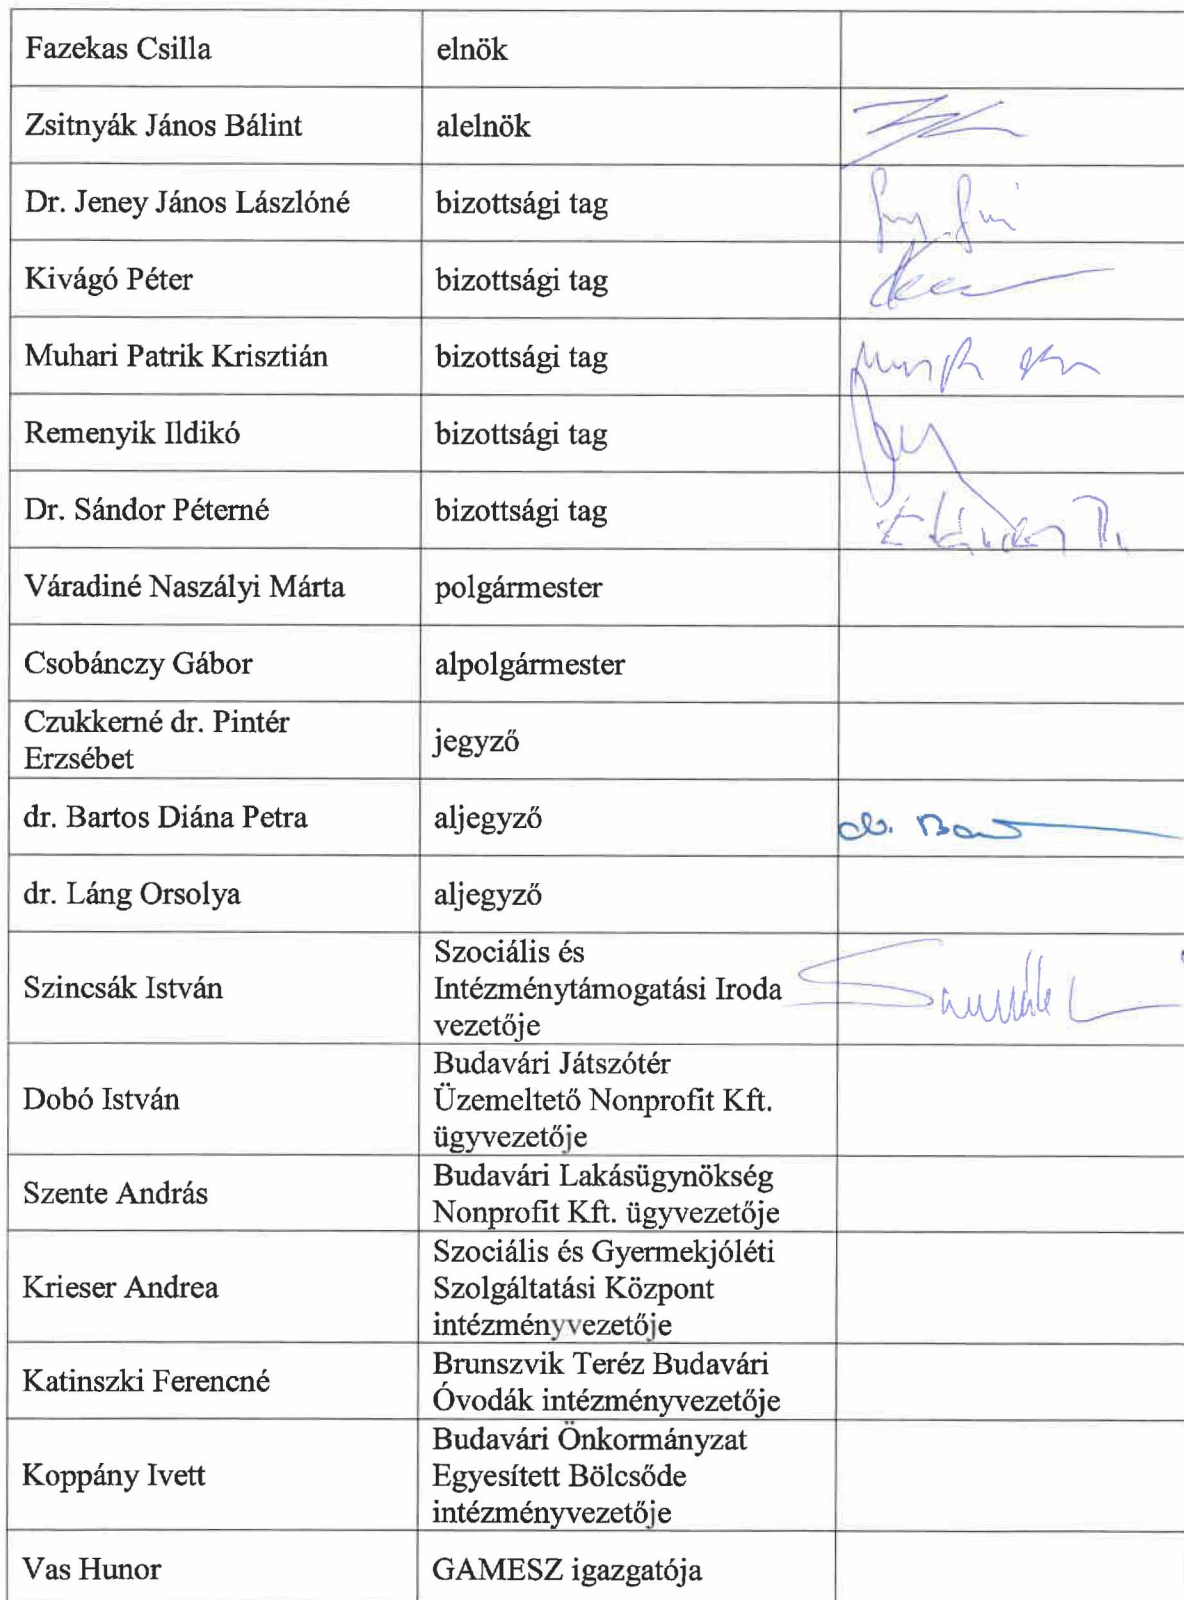 Fazekas Csilla elnök
Zsitnyák János Bálint alelnök
Dr. Jeney János Lászlóné bizottsági tag
Kivágó Péter bizottsági tag
Muhari Patrik Krisztián bizottsági tag
Remenyik Ildikó bizottsági tag
Dr. Sándor Péterné bizottsági tag
Váradiné Naszályi Márta polgármester
Csobánczy Gábor alpolgármester
Czukkerné dr. Pintér
Erzsébet
jegyző
dr. Bartos Diána Petra aljegyző
dr. Láng Orsolya aljegyző
Szincsák István
Szociális és
Intézménytámogatási Iroda
vezetője
Dobó István
Budavári Játszótér
Üzemeltető Nonprofit Kft.
ügyvezetője
Szente András
Budavári Lakásügynökség
Nonprofit Kft. ügyvezetője
Krieser Andrea
Szociális és Gyermekjóléti
Szolgáltatási Központ
intézményvezetője
Katinszki Ferencné
Brunszvik Teréz Budavári
Óvodák intézményvezetője
Koppány Ivett
Budavári Önkormányzat
Egyesített Bölcsőde
intézményvezetője
Vas Hunor GAMESZ igazgatója